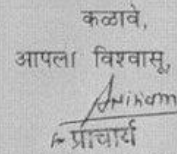 कळावे,
आपला विश्वासू,
प्राचार्य